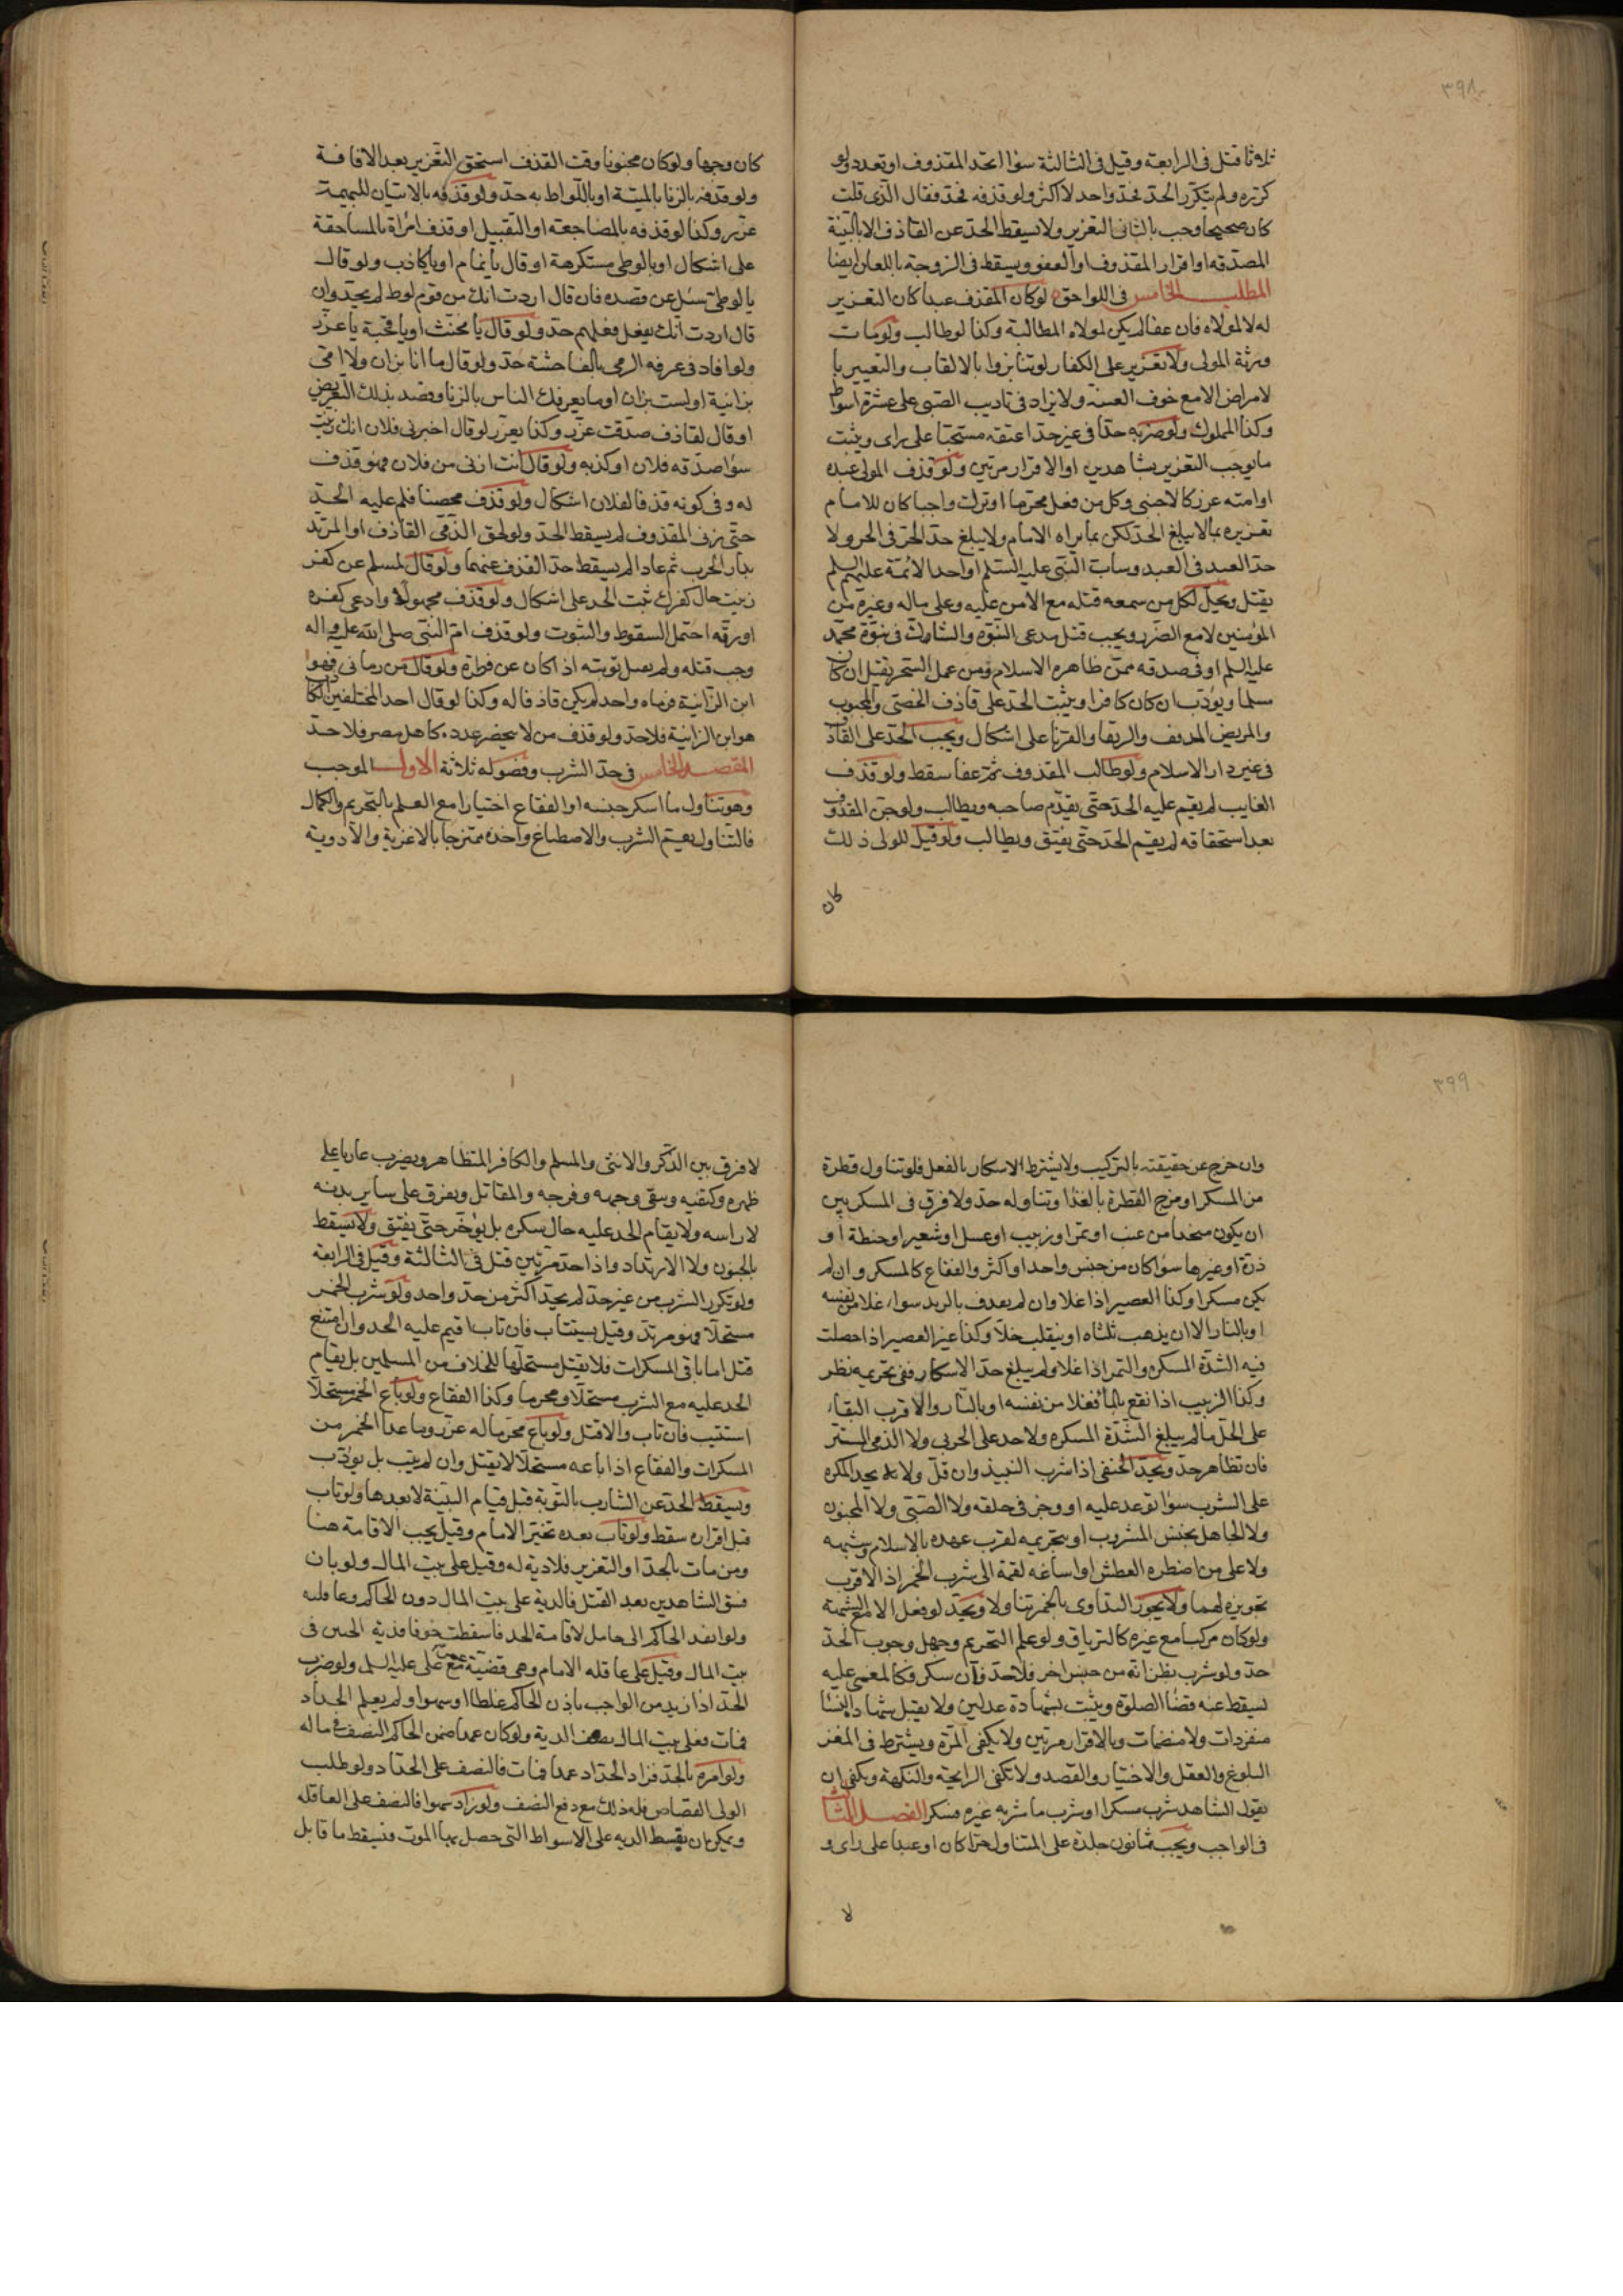 ٣٩٨
ثلاثا قتل فى الرابعة وقيل فى الثالثة سوا اتحد المقذوف او تعدد ولو
كرره ولم يتكرر الحد فحد واحد لا اكثر ولو قذفه فحد فقال الذى قلت
كان صحيحا وجب بالثانى التعزير ولا يسقط الحد عن القاذف الا بالبينة
المصدقه او اقرار المقذوف او العفو ويسقط فى الزوجة باللعان ايضا
المطلب الخامس فى اللواحق لو كان المقذف عبدا كان التعزير
له لا لمولاه فان عفا لم يكن لمولاه المطالبة وكذا لو طالب ولو مات
ورثة المولى ولا تعزير على الكفار لو تنابزوا بالالقاب والتعيير با
لامراض الا مع خوف الفتنة ولا يزاد فى تاديب الصبى على عشرة اسواط
وكذا المملوك ولو ضربه حدا فى غير حد اعتقه مستحبا على راى ويثبت
ما يوجب التعزير بشاهدين او الاقرار مرتين ولو قذف المولى عبده
او امته عزر كالاجنبى وكل من فعل محرما او ترك واجبا كان للامام
تعزيره بما لا يبلغ الحد لكن بما يراه الامام ولا يبلغ حد الحر فى الحر ولا
حد العبد فى العبد وساب النبى عليه السلم او احد الائمة عليهم السلم
يقتل ويحل لكل من سمعه قتله مع الامن عليه وعلى ماله وغيره من
المؤمنين لا مع الضرر ويجب قتل مدعى النبوة والشاك فى نبوة محمد
عليه السلم او فى صدقه ممن ظاهره الاسلام ومن عمل السحر يقتل ان كان
مسلما ويؤدب ان كان كافرا ويثبت الحد على قاذف الخصى والمجبوب
والمريض المدنف والرتقا والقرنا على اشكال ويجب الحد على القاذف
فى غير دار الاسلام ولو طالب المقذوف ثم عفا سقط ولو قذف
الغايب لم يقم عليه الحد حتى يقدم صاحبه ويطالب ولو جن المقذوف
بعد استحقاقه لم يقم الحد حتى يفيق ويطالب ولو قيل للولى ذلك
كان
كان وجها ولو كان مجنونا وقت القذف استحق التعزير بعد الافاقة
ولو قذفه بالزنا بالميتة او باللواط به حد ولو قذفه بالاتيان للبهيمة
عزر وكذا لو قذفه بالمضاجعة او التقبيل او قذف امراة بالمساحقة
على اشكال او بالوطى مستكرهة او قال يا نمام او يا كاذب ولو قال
يا لوطى سئل عن قصده فان قال اردت انك من قوم لوط لم يحد وان
قال اردت انك تفعل فعلهم حد ولو قال يا مخنث او يا قحبة يا عزر
ولو افاد فى عرفه الرمى بالفاحشة حد ولو قال ما انا بزان ولا امى
بزانية او لست بزان او ما يعرفك الناس بالزنا وقصد بذلك التعريض
او قال لقاذف صدقت عزر وكذا يعزر لو قال اخبرنى فلان انك زنيت
سوا صدقه فلان او كذبه ولو قال انت ازنى من فلان فهو قذف
له وفى كونه قذفا لفلان اشكال ولو قذف محصنا فلم عليه الحد
حتى زنى المقذوف لم يسقط الحد ولو لحق الذمى القاذف او المرتد
بدار الحرب ثم عاد لم يسقط حد القذف عنهما ولو قال لمسلم عن كفر
زنيت حال كفرك ثبت الحد على اشكال ولو قذف مجهولا وادعى كفره
او رقه احتمل السقوط والثبوت ولو قذف ام النبى صلى الله عليه واله
وجب قتله ولم يعمل توبته اذا كان عن فطرة ولو قال من رمانى فهو
ابن الزانية فرماه واحد لم يكن قاذفا له وكذا لو قال احد المختلفين الكاذب
هو ابن الزانية فلا حد ولو قذف من لا ينحصر عدده كاهل مصر فلا حد
المقصد الخامس فى حد الشرب وفصوله ثلاثة الاول الموجب
وهو تناول ما اسكر جنسه او الفقاع اختيارا مع العلم بالتحريم والكمال
فالتناول يعم الشرب والاصطباغ واخذه ممتزجا بالاغذية والادوية
٣٩٩
وان خرج عن حقيقته بالتركيب ولا يشترط الاسكار بالفعل فلو تناول قطرة
من المسكر او مزج القطرة بالغذا وتناوله حد ولا فرق فى المسكر بين
ان يكون متخذا من عنب او تمر او زبيب او عسل او شعير او حنطة او
ذرة او غيرها سوا كان من جنس واحد او اكثر والفقاع كالمسكر وان لم
يكن مسكرا وكذا العصير اذا غلا وان لم يقذف بالزبد سوا، غلا من نفسه
او بالنار الا ان يذهب ثلثاه او ينقلب خلا وكذا غير العصير اذا حصلت
فيه الشدة المسكره والتمر اذا غلا ولم يبلغ حد الاسكار ففى تحريمه نظر
وكذا الزبيب اذا نقع بالما فغلا من نفسه او بالنار والاقرب البقاء
على الحل ما لم يبلغ الشدة المسكره ولا حد على الحربى ولا الذمى المستتر
فان تظاهر حد ويحد الحنفى اذا شرب النبيذ وان قل ولا يحد المكره
على الشرب سوا توعد عليه او وجر فى حلقه ولا الصبى ولا المجنون
ولا الجاهل بجنس المشروب او بتحريمه لقرب عهده بالاسلام وشبهه
ولا على من اضطره العطش او اساغه لقمة الى شرب الخمر اذ الاقرب
تجويزه لهما ولا يجوز التداوى بالخمر تناولا ويحد لو فعل الا مع الشبهة
ولو كان مركبا مع غيره كالترياق ولو علم التحريم وجهل وجوب الحد
حد ولو شرب بظن انه من جنس اخر فلا حد فان سكر فكالمغمى عليه
يسقط عنه قضا الصلوة ويثبت بشهادة عدلين ولا يقبل شهادة النسا
منفردات ولا منضمات وبالاقرار مرتين ولا يكفى المرة ويشترط فى المقر
البلوغ والعقل والاختيار والقصد ولا تكفى الرايحة والنكهة ويكفى ان
يقول الشاهد شرب مسكرا او شرب ما شربه غيره فسكر الفصل الثانى
فى الواجب ويجب ثمانون جلدة على المتناول حرا كان او عبدا على راى و
لا
لا فرق بين الذكر والانثى والمسلم والكافر المتظاهر ويضرب عاريا على
ظهره وكتفيه ويتقى وجهه وفرجه والمقاتل ويفرق على ساير بدنه
لا راسه ولا يقام الحد عليه حال سكره بل يؤخر حتى يفيق ولا يسقط
بالجنون ولا الارتداد واذا حد مرتين قتل فى الثالثة وقيل فى الرابعة
ولو تكرر الشرب من غير حد لم يحد اكثر من حد واحد ولو شرب الخمر
مستحلا فهو مرتد وقيل يستتاب فان تاب اقيم عليه الحد وان امتنع
قتل اما باقى المسكرات فلا يقتل مستحلها للخلاف من المسلمين بل يقام
الحد عليه مع الشرب مستحلا ومحرما وكذا الفقاع ولو باع الخمر مستحلا
استتيب فان تاب والا قتل ولو باع محرما له عزر وما عدا الخمر من
المسكرات والفقاع اذا باعه مستحلا لا يقتل وان لم يتب بل يؤدب
ويسقط الحد عن الشارب بالتوبة قبل قيام البينة لا بعدها ولو تاب
قبل اقراره سقط ولو تاب بعده تخير الامام وقيل يجب الاقامة هنا
ومن مات بالحد او التعزير فلا دية له وقيل على بيت المال ولو بان
فسق الشاهدين بعد القتل فالدية على بيت المال دون الحاكم وعاقلته
ولو انفذ الحاكم الى حامل لاقامة الحد فاسقطت خوفا فدية الجنين فى
بيت المال وقيل على عاقله الامام وهى قضية عمر مع على عليه السلم ولو ضرب
الحد ازيد من الواجب باذن الحاكم غلطا او سهوا ولم يعلم الحداد
فمات فعلى بيت المال نصف الدية ولو كان عمدا ضمن الحاكم النصف فى ماله
ولو امره بالحد فزاد الحداد عمدا فمات فالنصف على الحداد ولو طلب
الولى القصاص فله ذلك مع دفع النصف ولو زاد سهوا فالنصف على العاقله
ويمكن ان يقسط الديه على الاسواط التى حصل بها الموت فيسقط ما قابل